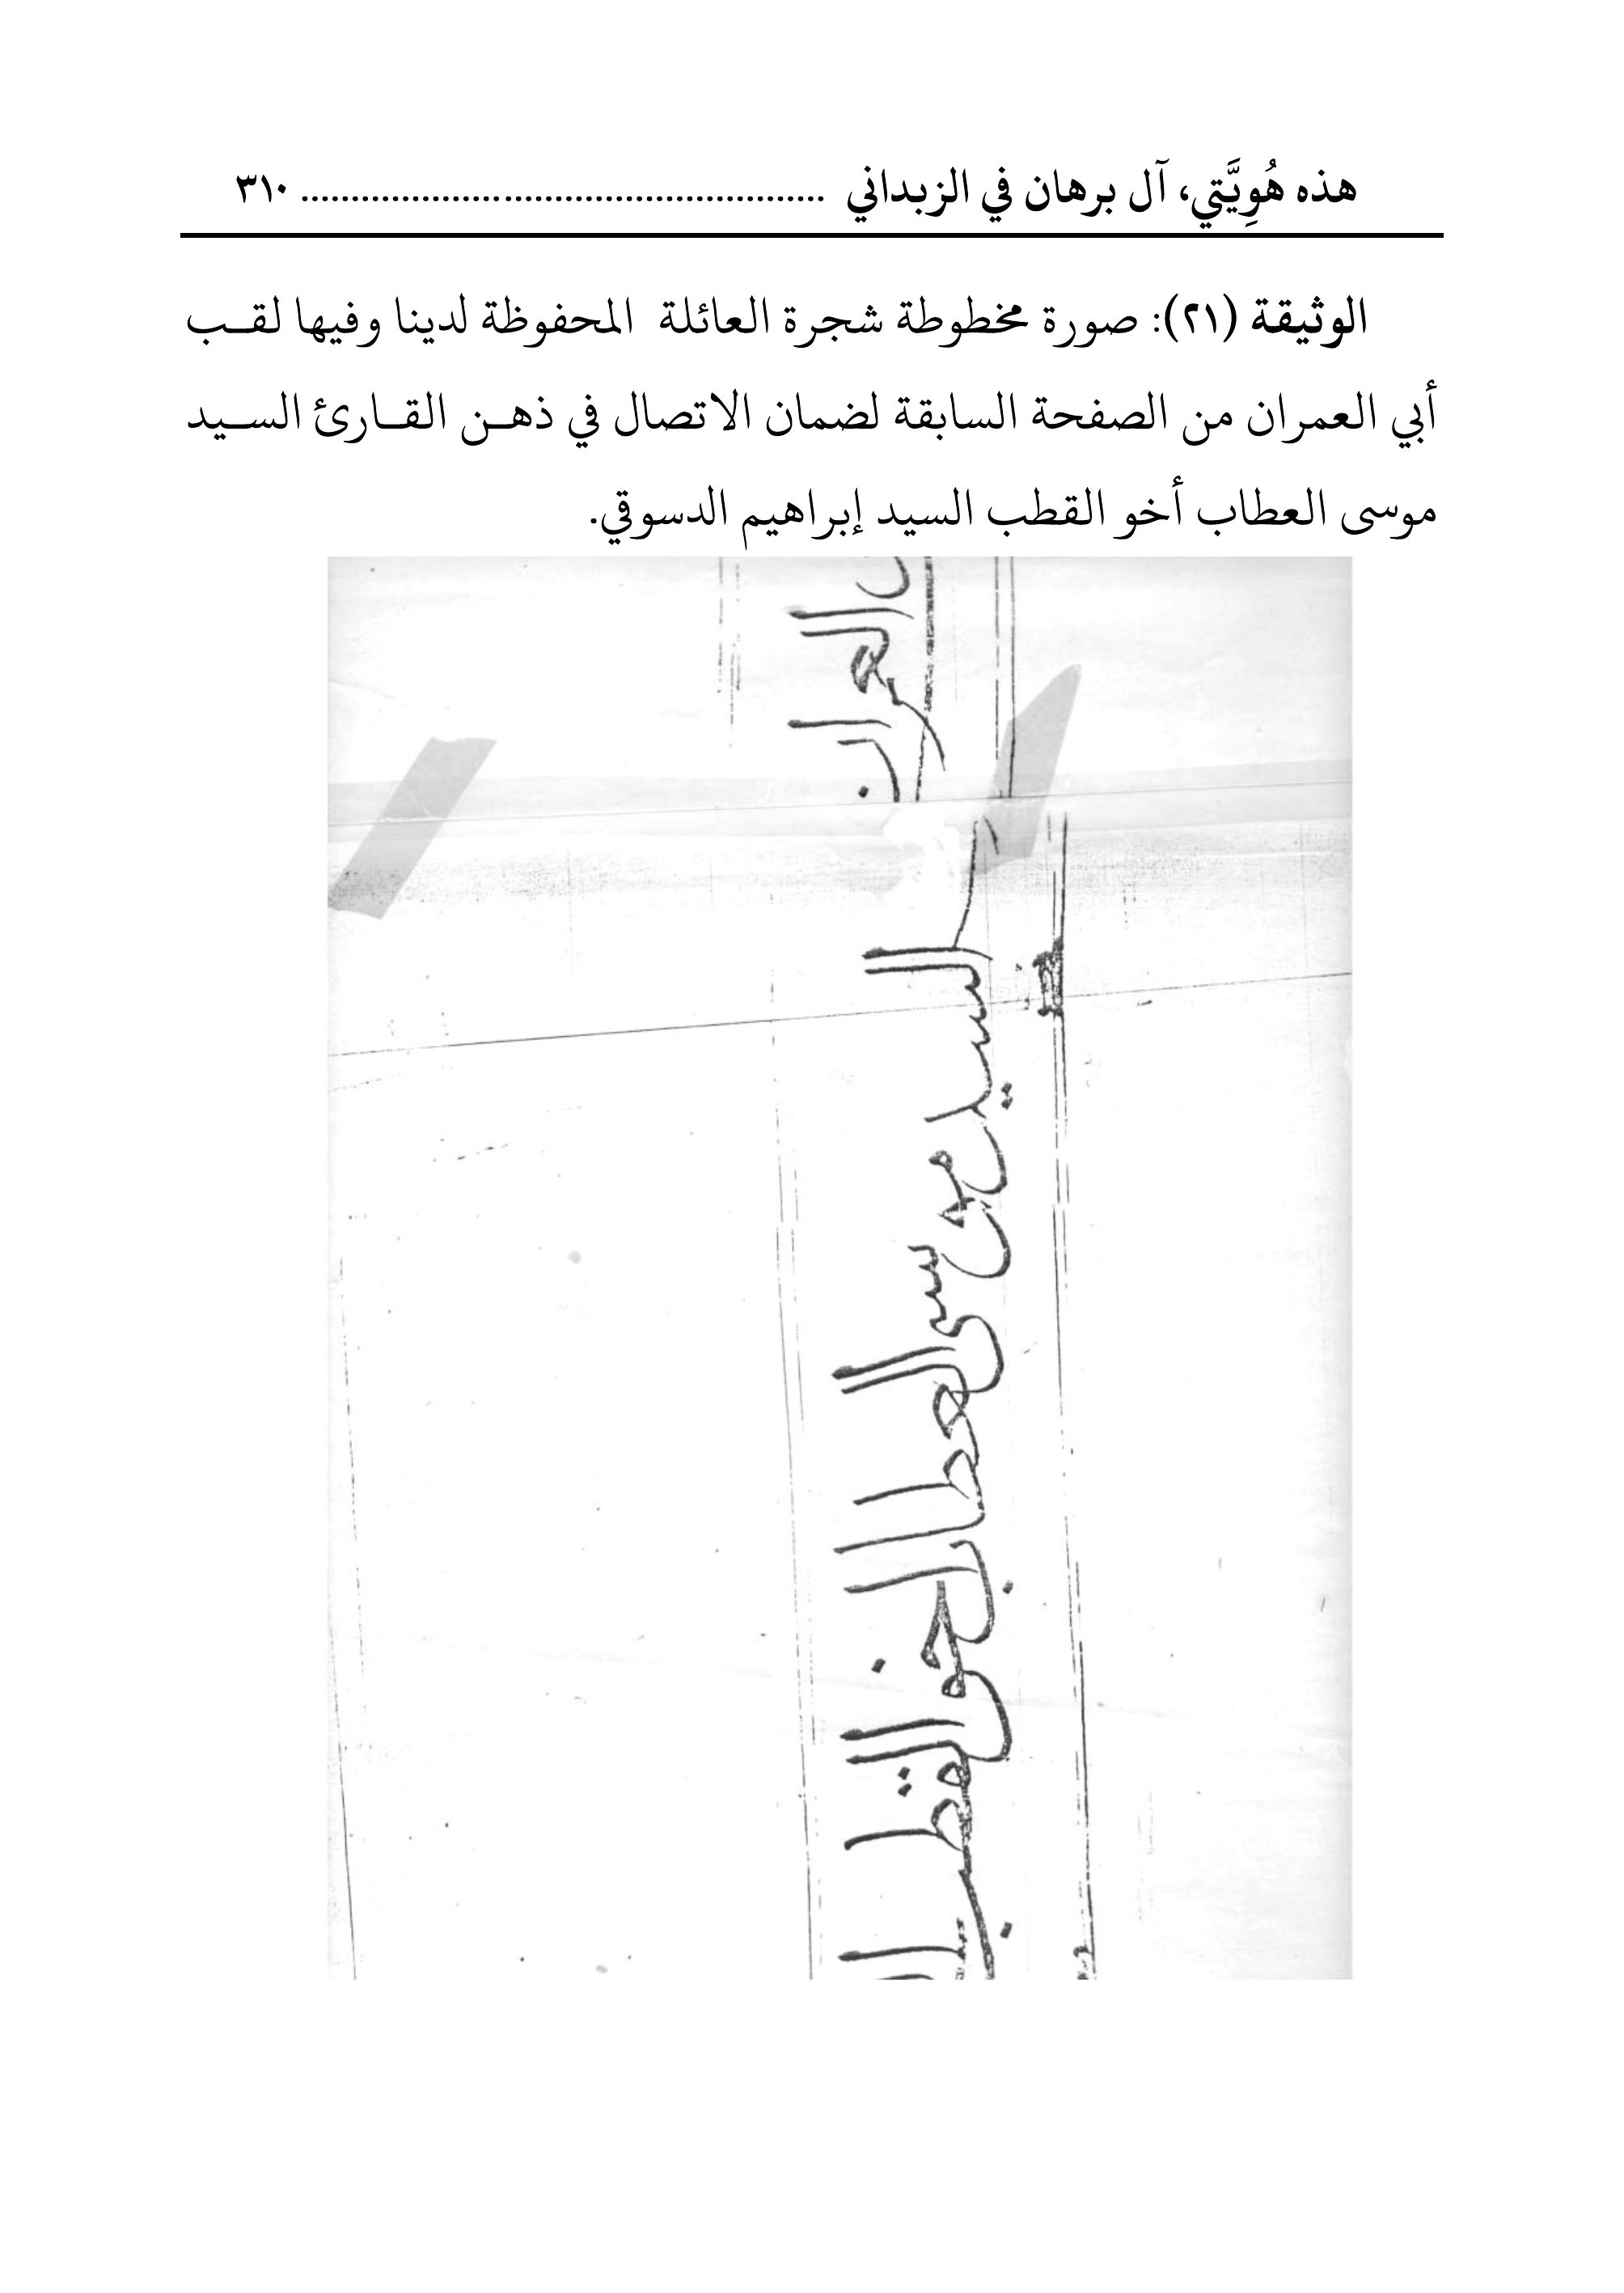 هذه هُوِيَّتي، آل برهان في الزبداني .................................................... ٣١٠
الوثيقة (٢١): صورة مخطوطة شجرة العائلة المحفوظة لدينا وفيها لقب
أبي العمران من الصفحة السابقة لضمان الاتصال في ذهن القارئ السيد
موسى العطاب أخو القطب السيد إبراهيم الدسوقي.
العمران
السيد موسى العطاب اخو القطب